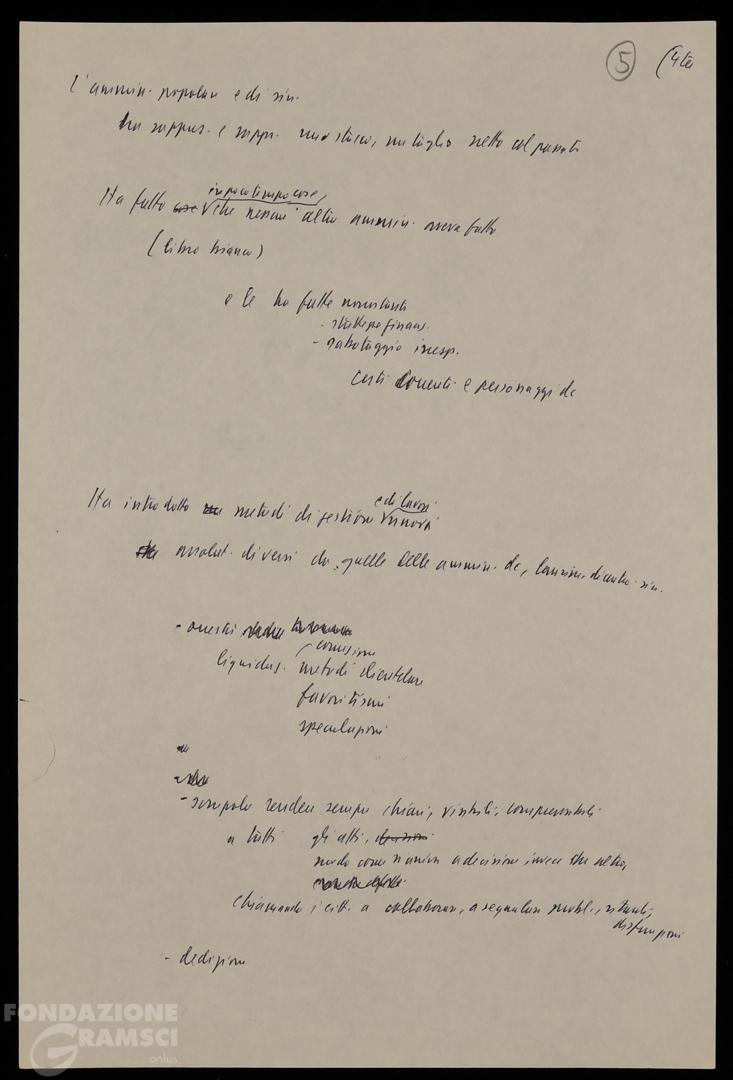 5 (4te
L'ammin. popolare e di sin.
ha rappres. e rappr. uno stacco, un taglio netto col passato
in poco tempo cose
Ha fatto cose che nessun' altra ammin. aveva fatto
(libro bianco)
e le ha fatte nonostante
- strettezze finanz.
- sabotaggio
certi e personaggi dc
e di lavoro
Ha introdotto metodi di gestione nuovi
assolut. diversi da quelle delle ammin. dc, di centro-sin.
- onestà
corruzione
liquidaz. metodi clientelari
favoritismi
speculazioni
- scrupolo rendere sempre chiari, visibili, comprensibili
a tutti gli atti, decisioni
modo come si arriva a decisione invece che altra,
chiamando i citt. a collaborare, a segnalare probl., ritardi,
disfunzioni
- dedizione
FONDAZIONE
GRAMSCI
onlus